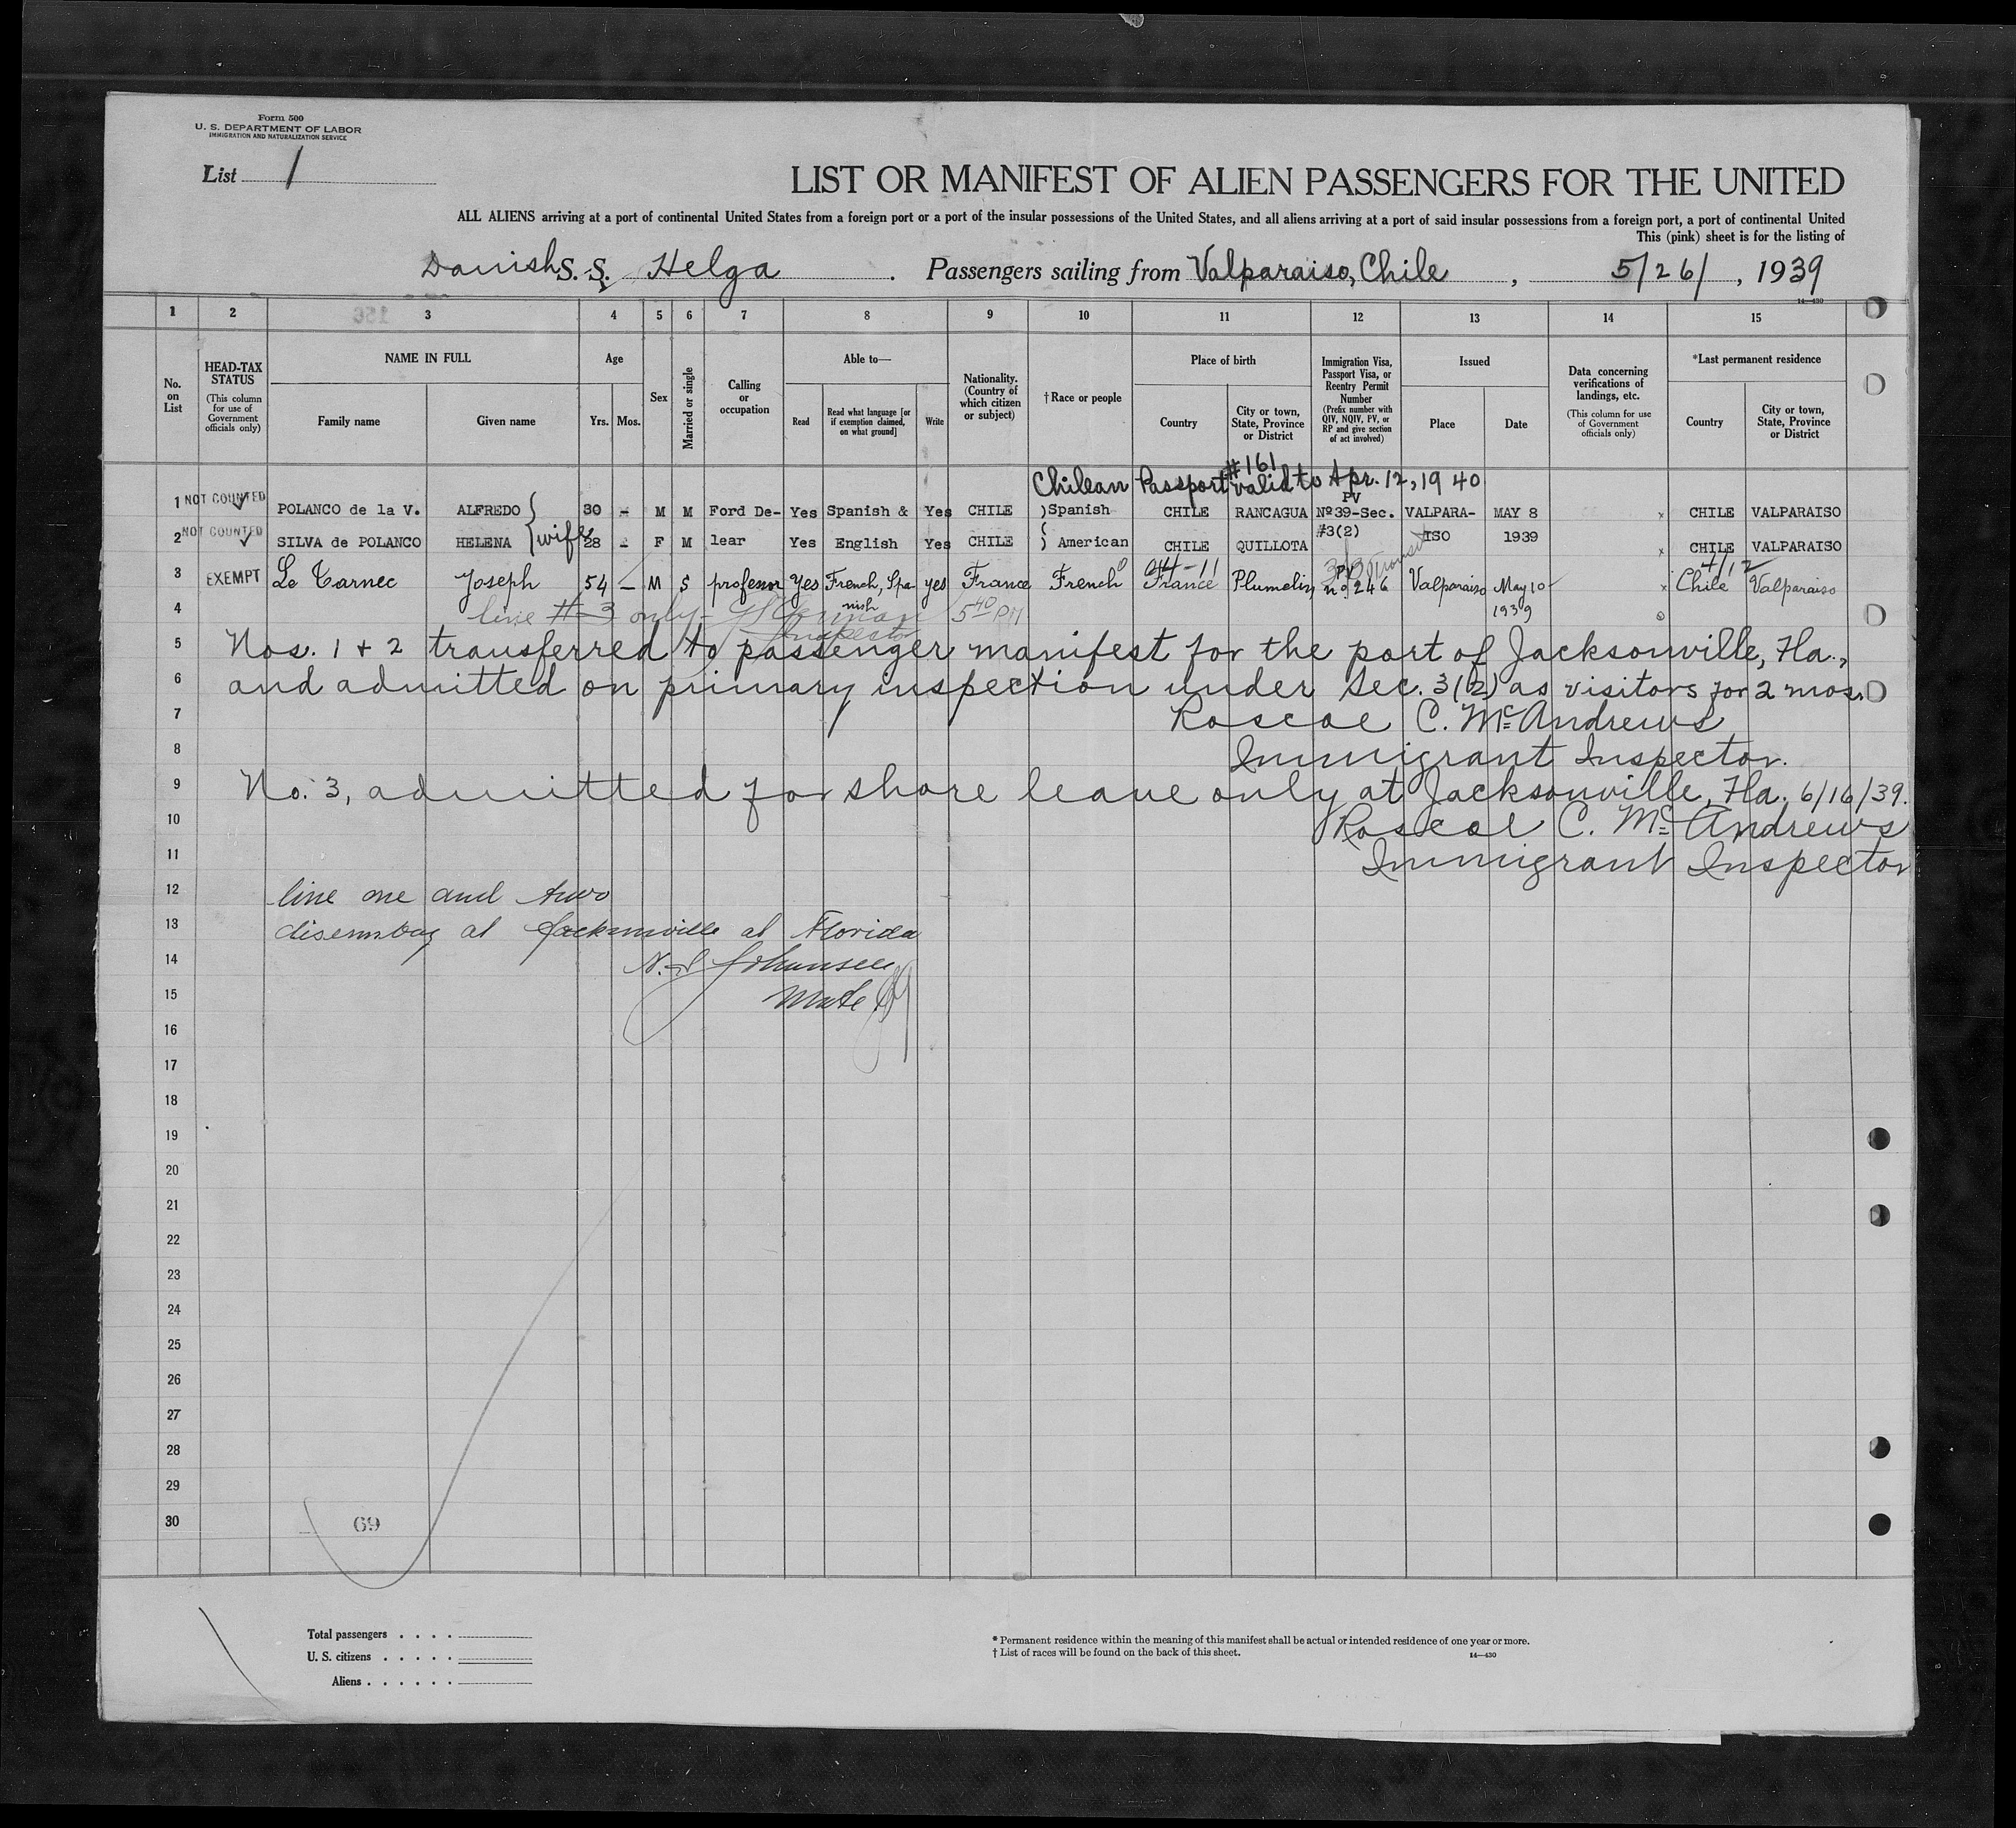 Form 500
U. S. DEPARTMENT OF LABOR
IMMIGRATION AND NATURALIZATION SERVICE
List 1
LIST OR MANIFEST OF ALIEN PASSENGERS FOR THE UNITED
ALL ALIENS arriving at a port of continental United States from a foreign port or a port of the insular possessions of the United States, and all aliens arriving at a port of said insular possessions from a foreign port, a port of continental United
This (pink) sheet is for the listing of
Danish S. S. Helga . Passengers sailing from Valparaiso, Chile , 5/26/ , 1939
14—430
1 2 3 4 5 6 7 8 9 10 11 12 13 14 15
156
No. on List
HEAD-TAX STATUS (This column for use of Government officials only)
NAME IN FULL
Family name Given name
Age
Yrs. Mos.
Sex
Married or single
Calling or occupation
Able to—
Read Read what language [or if exemption claimed, on what ground] Write
Nationality. (Country of which citizen or subject)
†Race or people
Place of birth
Country City or town, State, Province or District
Immigration Visa, Passport Visa, or Reentry Permit Number (Prefix number with QIV, NQIV, PV, or RP and give section of act involved)
Issued
Place Date
Data concerning verifications of landings, etc. (This column for use of Government officials only)
*Last permanent residence
Country City or town, State, Province or District
#161
Chilean Passport valid to Apr. 12, 1940
PV
1 NOT COUNTED POLANCO de la V. ALFREDO 30 - M M Ford De- Yes Spanish & Yes CHILE )Spanish CHILE RANCAGUA Nº39-Sec. VALPARA- MAY 8 x CHILE VALPARAISO
2 NOT COUNTED SILVA de POLANCO HELENA } wife 28 - F M lear Yes English Yes CHILE ) American CHILE QUILLOTA #3(2) ISO 1939 x CHILE VALPARAISO
44-11 3(3) Transit 4/12
PV
3 EXEMPT Le Tarnec Joseph 54 — M S professor Yes French, Spa- yes France French France Plumelin no. 246 Valparaiso May 10 x Chile Valparaiso
nish 1939
4 line #3 only - Inspector 5 40 PM
5 Nos. 1 + 2 transferred to passenger manifest for the port of Jacksonville, Fla.,
6 and admitted on primary inspection under Sec. 3(2) as visitors for 2 mos.
7 Roscoe C. McAndrews
8 Immigrant Inspector.
9 No. 3, admitted for shore leave only at Jacksonville, Fla. 6/16/39.
10 Roscoe C. McAndrews
11 Immigrant Inspector
12 line one and two
13 disembarg at Jacksonville at Florida
14 Johansen
15 Mate
16
17
18
19
20
21
22
23
24
25
26
27
28
29
30 69
Total passengers . . . .
U. S. citizens . . . . .
Aliens . . . . . .
* Permanent residence within the meaning of this manifest shall be actual or intended residence of one year or more.
† List of races will be found on the back of this sheet.
14—430